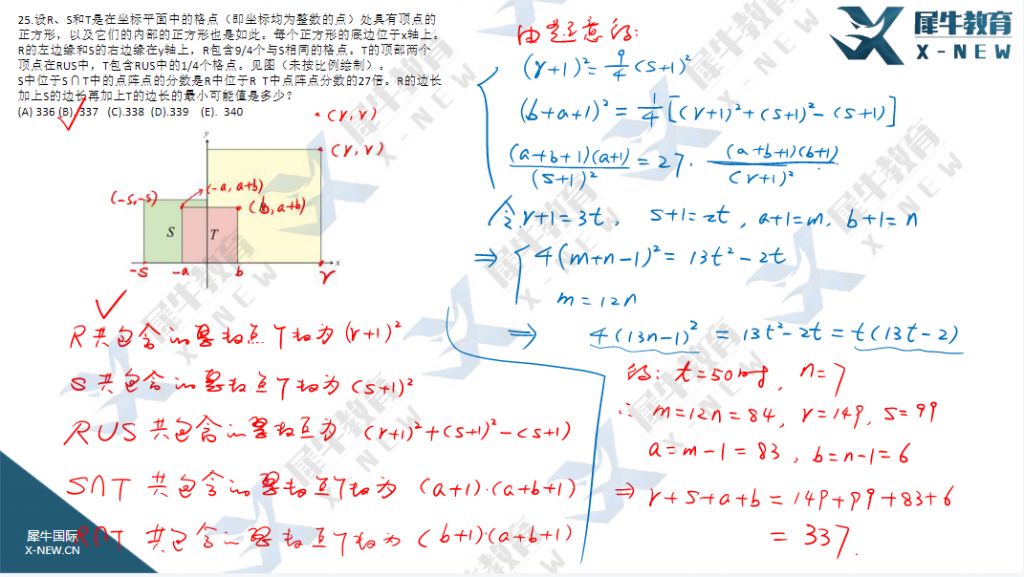 25.设R、S和T是在坐标平面中的格点（即坐标均为整数的点）处具有顶点的
正方形，以及它们的内部的正方形也是如此。每个正方形的底边位于x轴上。
R的左边缘和S的右边缘在y轴上，R包含9/4个与S相同的格点。T的顶部两个
顶点在RUS中，T包含RUS中的1/4个格点。见图（未按比例绘制）。
S中位于S∩T中的点阵点的分数是R中位于R T中点阵点分数的27倍。R的边长
加上S的边长再加上T的边长的最小可能值是多少？
(A) 336 (B) 337 (C).338 (D).339 (E). 340
(r, r)
y
(r, r)
(-a, a+b)
(-s,-s)
(b, a+b)
S
T
x
-s
-a
b
r
R共包含的
(r+1)²
S共包含的
为 (s+1)²
RUS 共包含的
为 (r+1)²+(s+1)²-(s+1)
S∩T 共包含的
为 (a+1)·(a+b+1)
R∩T 共包含的
为 (b+1)·(a+b+1)
由题意得:
(r+1)² = 9/4 (s+1)²
(b+a+1)² = 1/4 [(r+1)²+(s+1)²-(s+1)]
(a+b+1)(a+1)/(s+1)² = 27· (a+b+1)(b+1)/(r+1)²
令 r+1=3t, s+1=2t, a+1=m, b+1=n
⇒ 4(m+n-1)² = 13t²-2t
m=12n
⇒ 4(13n-1)² = 13t²-2t = t(13t-2)
得: t=50时, n=7
∴ m=12n=84, r=149, s=99
a=m-1=83, b=n-1=6
⇒ r+s+a+b=149+99+83+6
=337.
犀牛教育
X-NEW
犀牛国际
X-NEW.CN